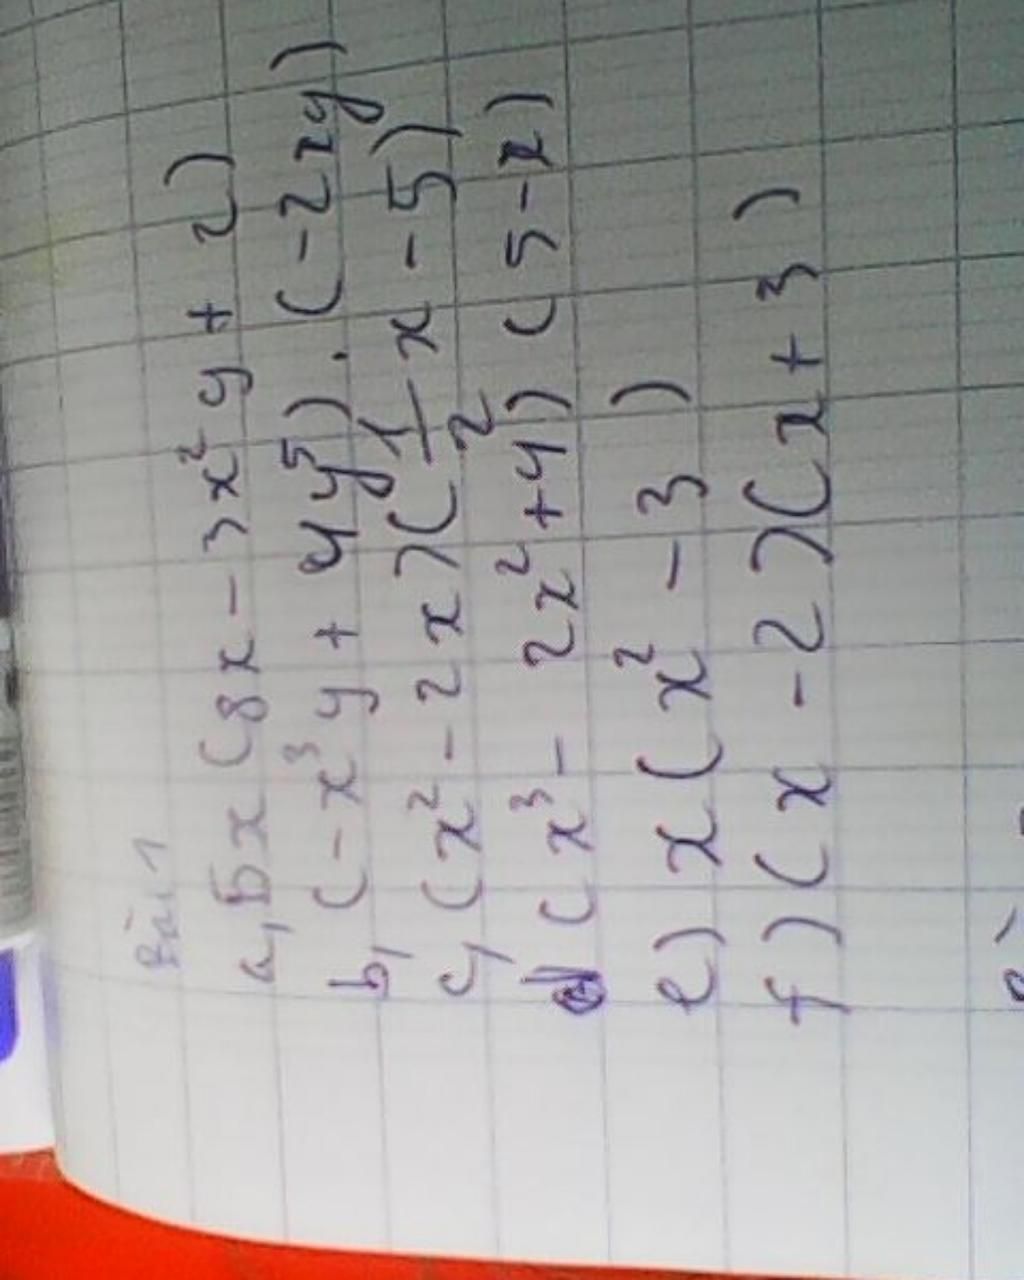 Bài 1
a, 5x (8x - 3x²y + 2)
b, (-x³y + 4y⁵) . (-2xy)
c, (x² - 2x)(1/2 x - 5)
d (x³ - 2x² + 4) (5 - x)
e) x (x² - 3 )
f) (x - 2)(x + 3)